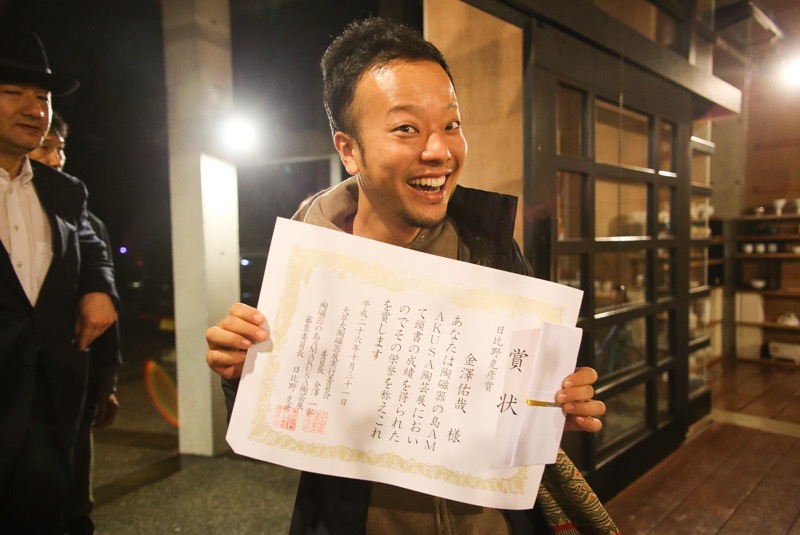 日比野克彦賞
賞状
金澤佑哉 様
あなたは陶磁器の島AM
AKUSA陶芸展におい
て頭書の成績を得られた
のでその栄誉を称えこれ
を賞します
平成二十六年十月三十一日
天草大陶磁器展実行委員会
委員長 金澤 一
陶磁器の島AMAKUSA陶芸展
審査委員長 日比野 克彦